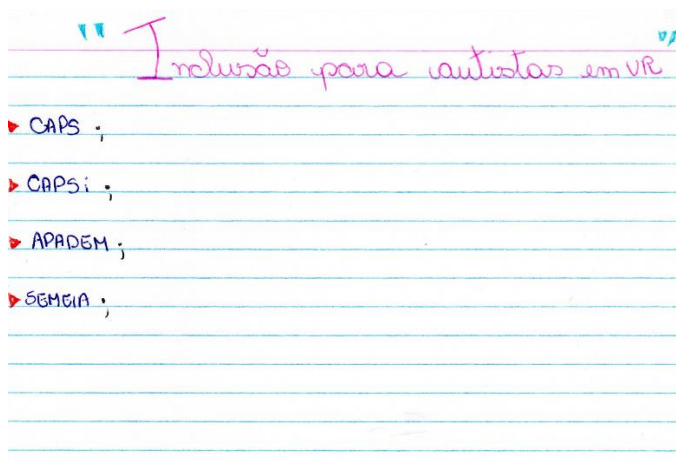 "Inclusão para autistas em VR"
CAPS ;
CAPSi ;
APADEM ;
SEMEIA ;